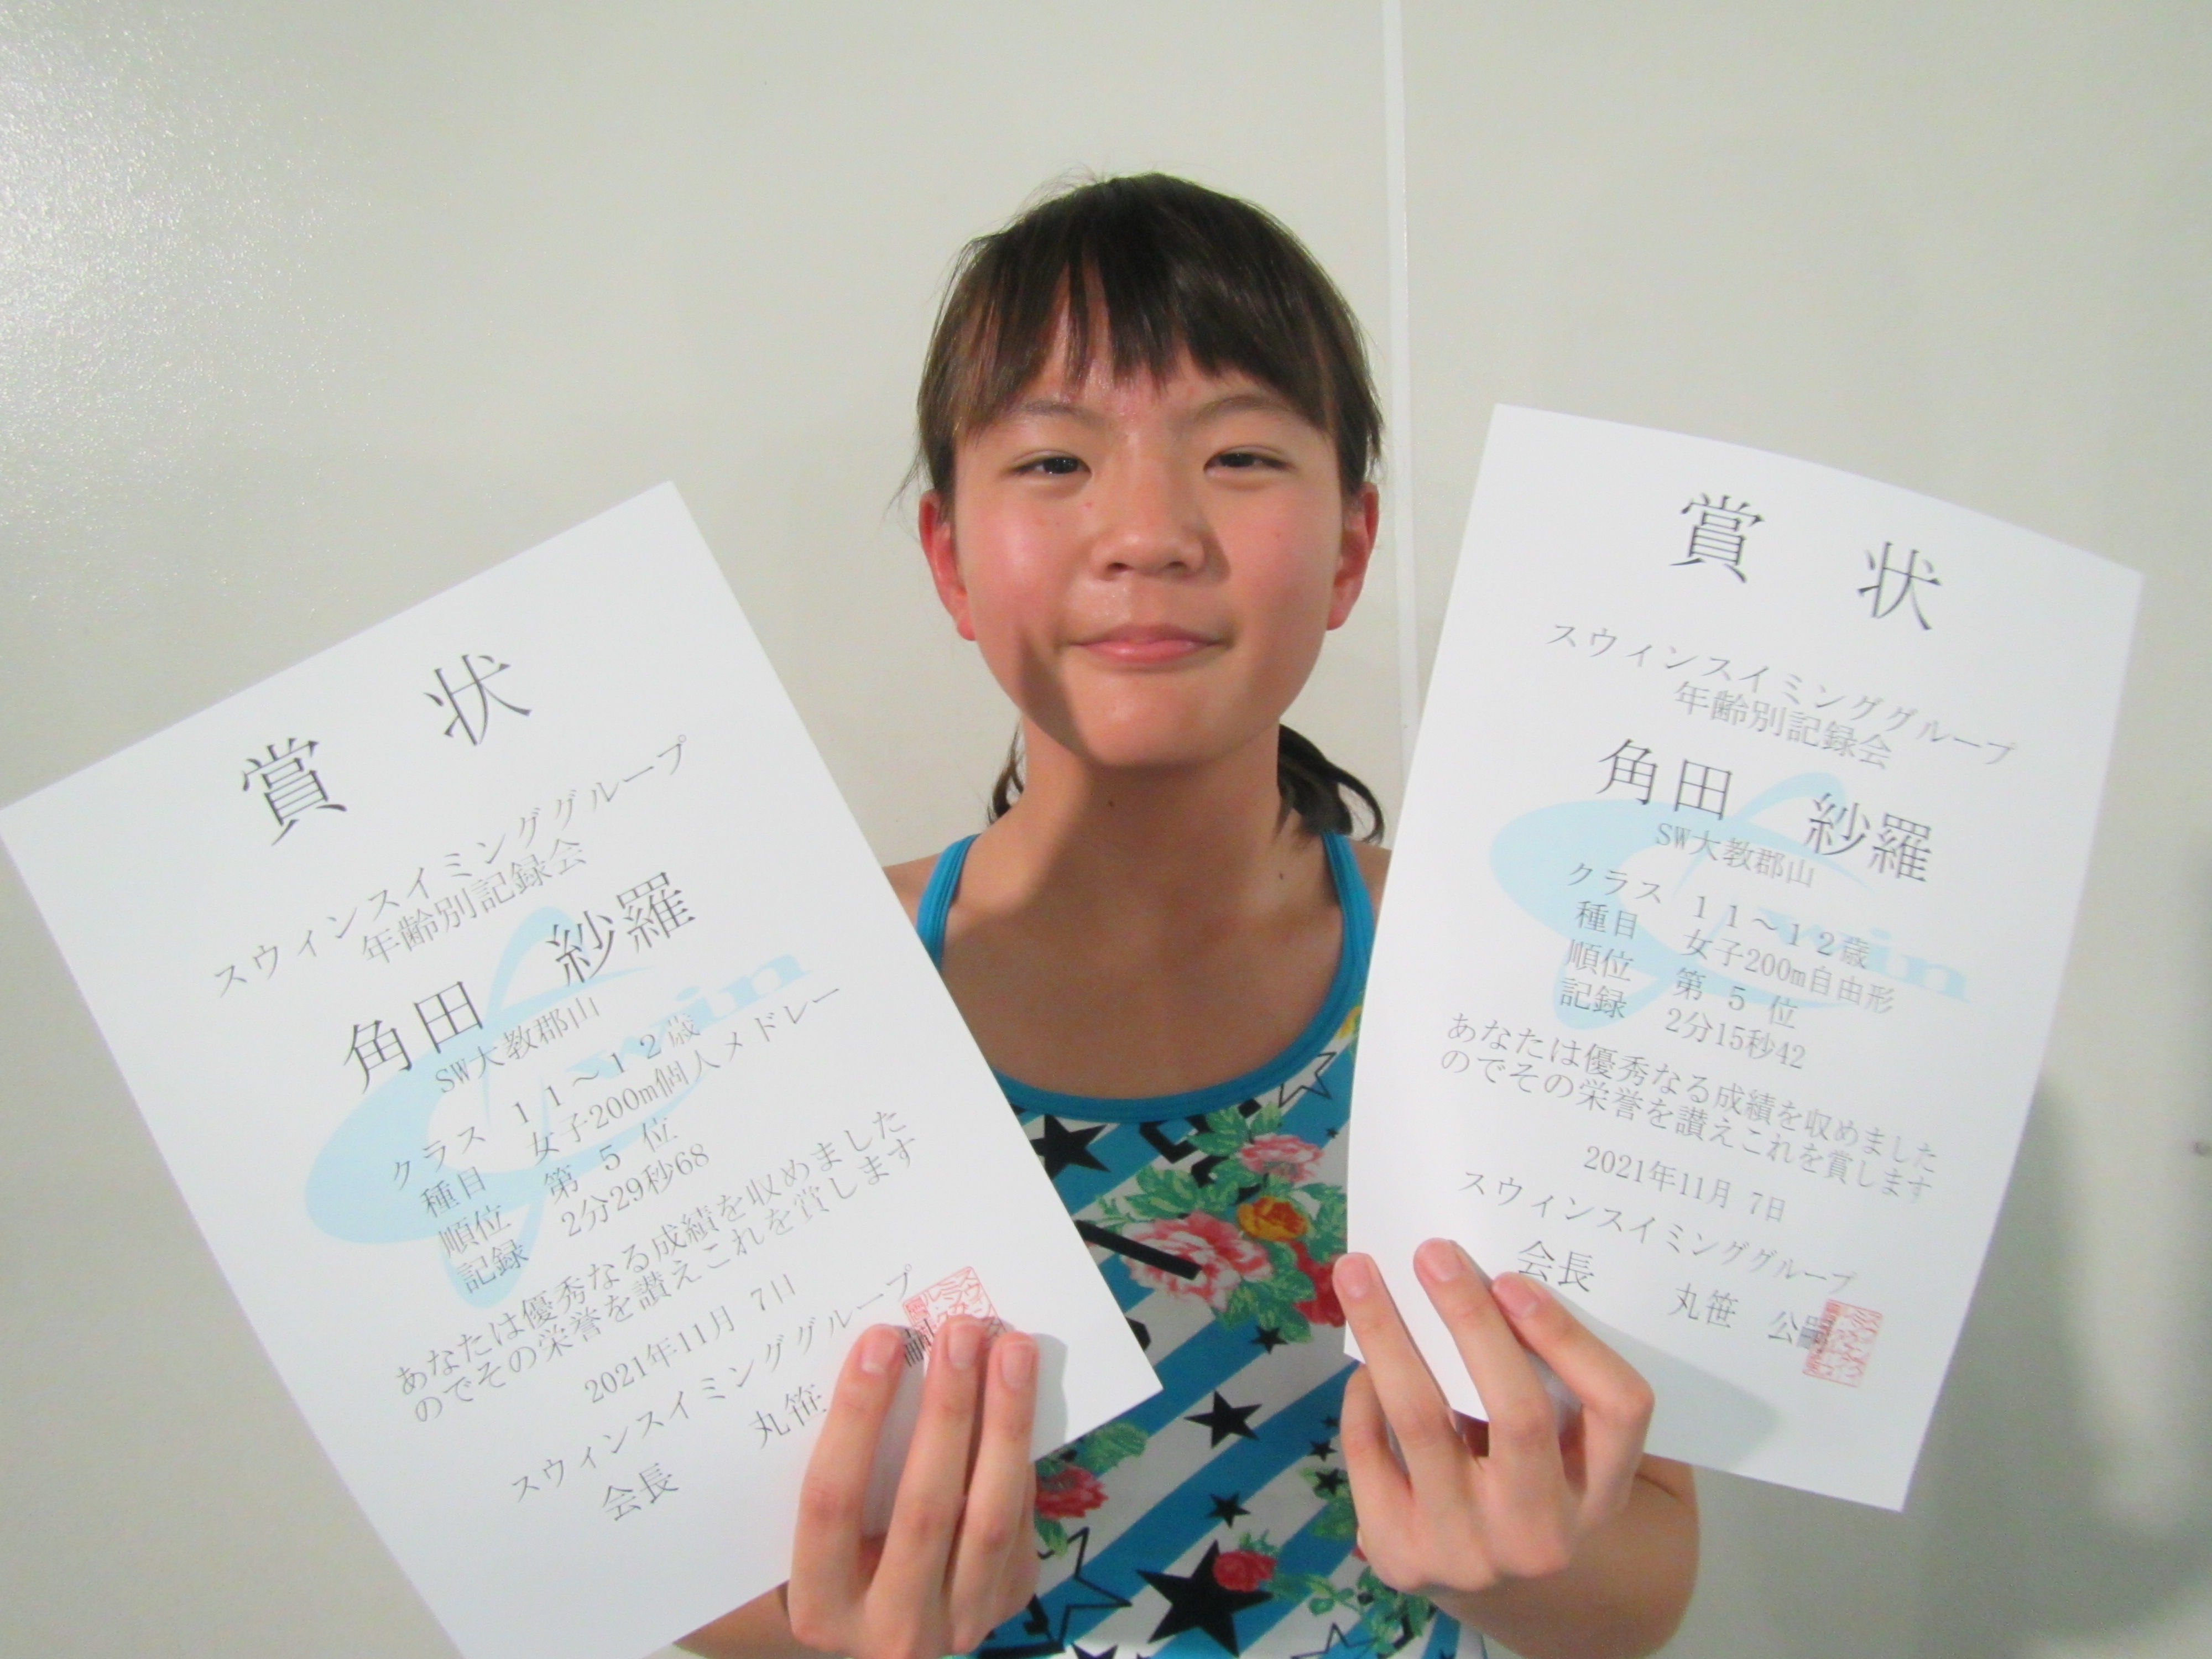 賞 状
スウィンスイミンググループ
年齢別記録会
角田 紗羅
SW大教郡山
クラス １１～１２歳
種目 女子200m個人メドレー
順位 第 ５ 位
記録 2分29秒68
あなたは優秀なる成績を収めました
のでその栄誉を讃えこれを賞します
2021年11月 7日
スウィンスイミンググループ
会長 丸笹
賞 状
スウィンスイミンググループ
年齢別記録会
角田 紗羅
SW大教郡山
クラス １１～１２歳
種目 女子200m自由形
順位 第 ５ 位
記録 2分15秒42
あなたは優秀なる成績を収めました
のでその栄誉を讃えこれを賞します
2021年11月 7日
スウィンスイミンググループ
会長 丸笹 公